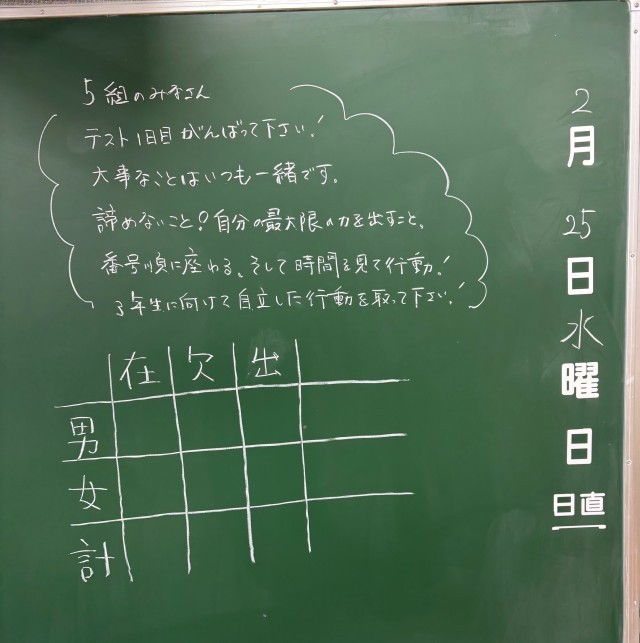 5組のみなさん
テスト1日目がんばって下さい!
大事なことはいつも一緒です。
諦めないこと!自分の最大限の力を出すこと、
番号順に座わる、そして時間を見て行動!
3年生に向けて自立した行動を取って下さい!
在 欠 出
男
女
計
2
月
25
日
水
曜
日
日直